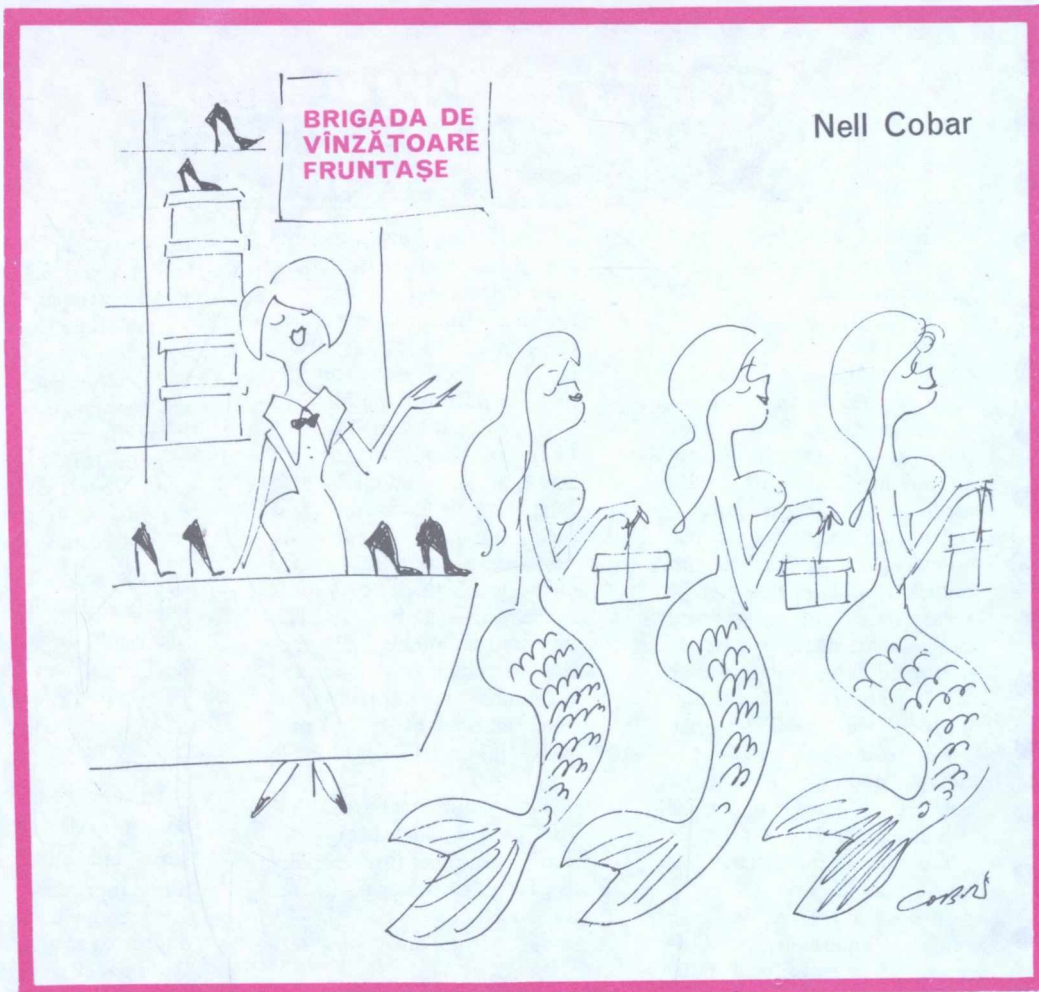 BRIGADA DE
VÎNZĂTOARE
FRUNTAȘE
Nell Cobar
COBAR